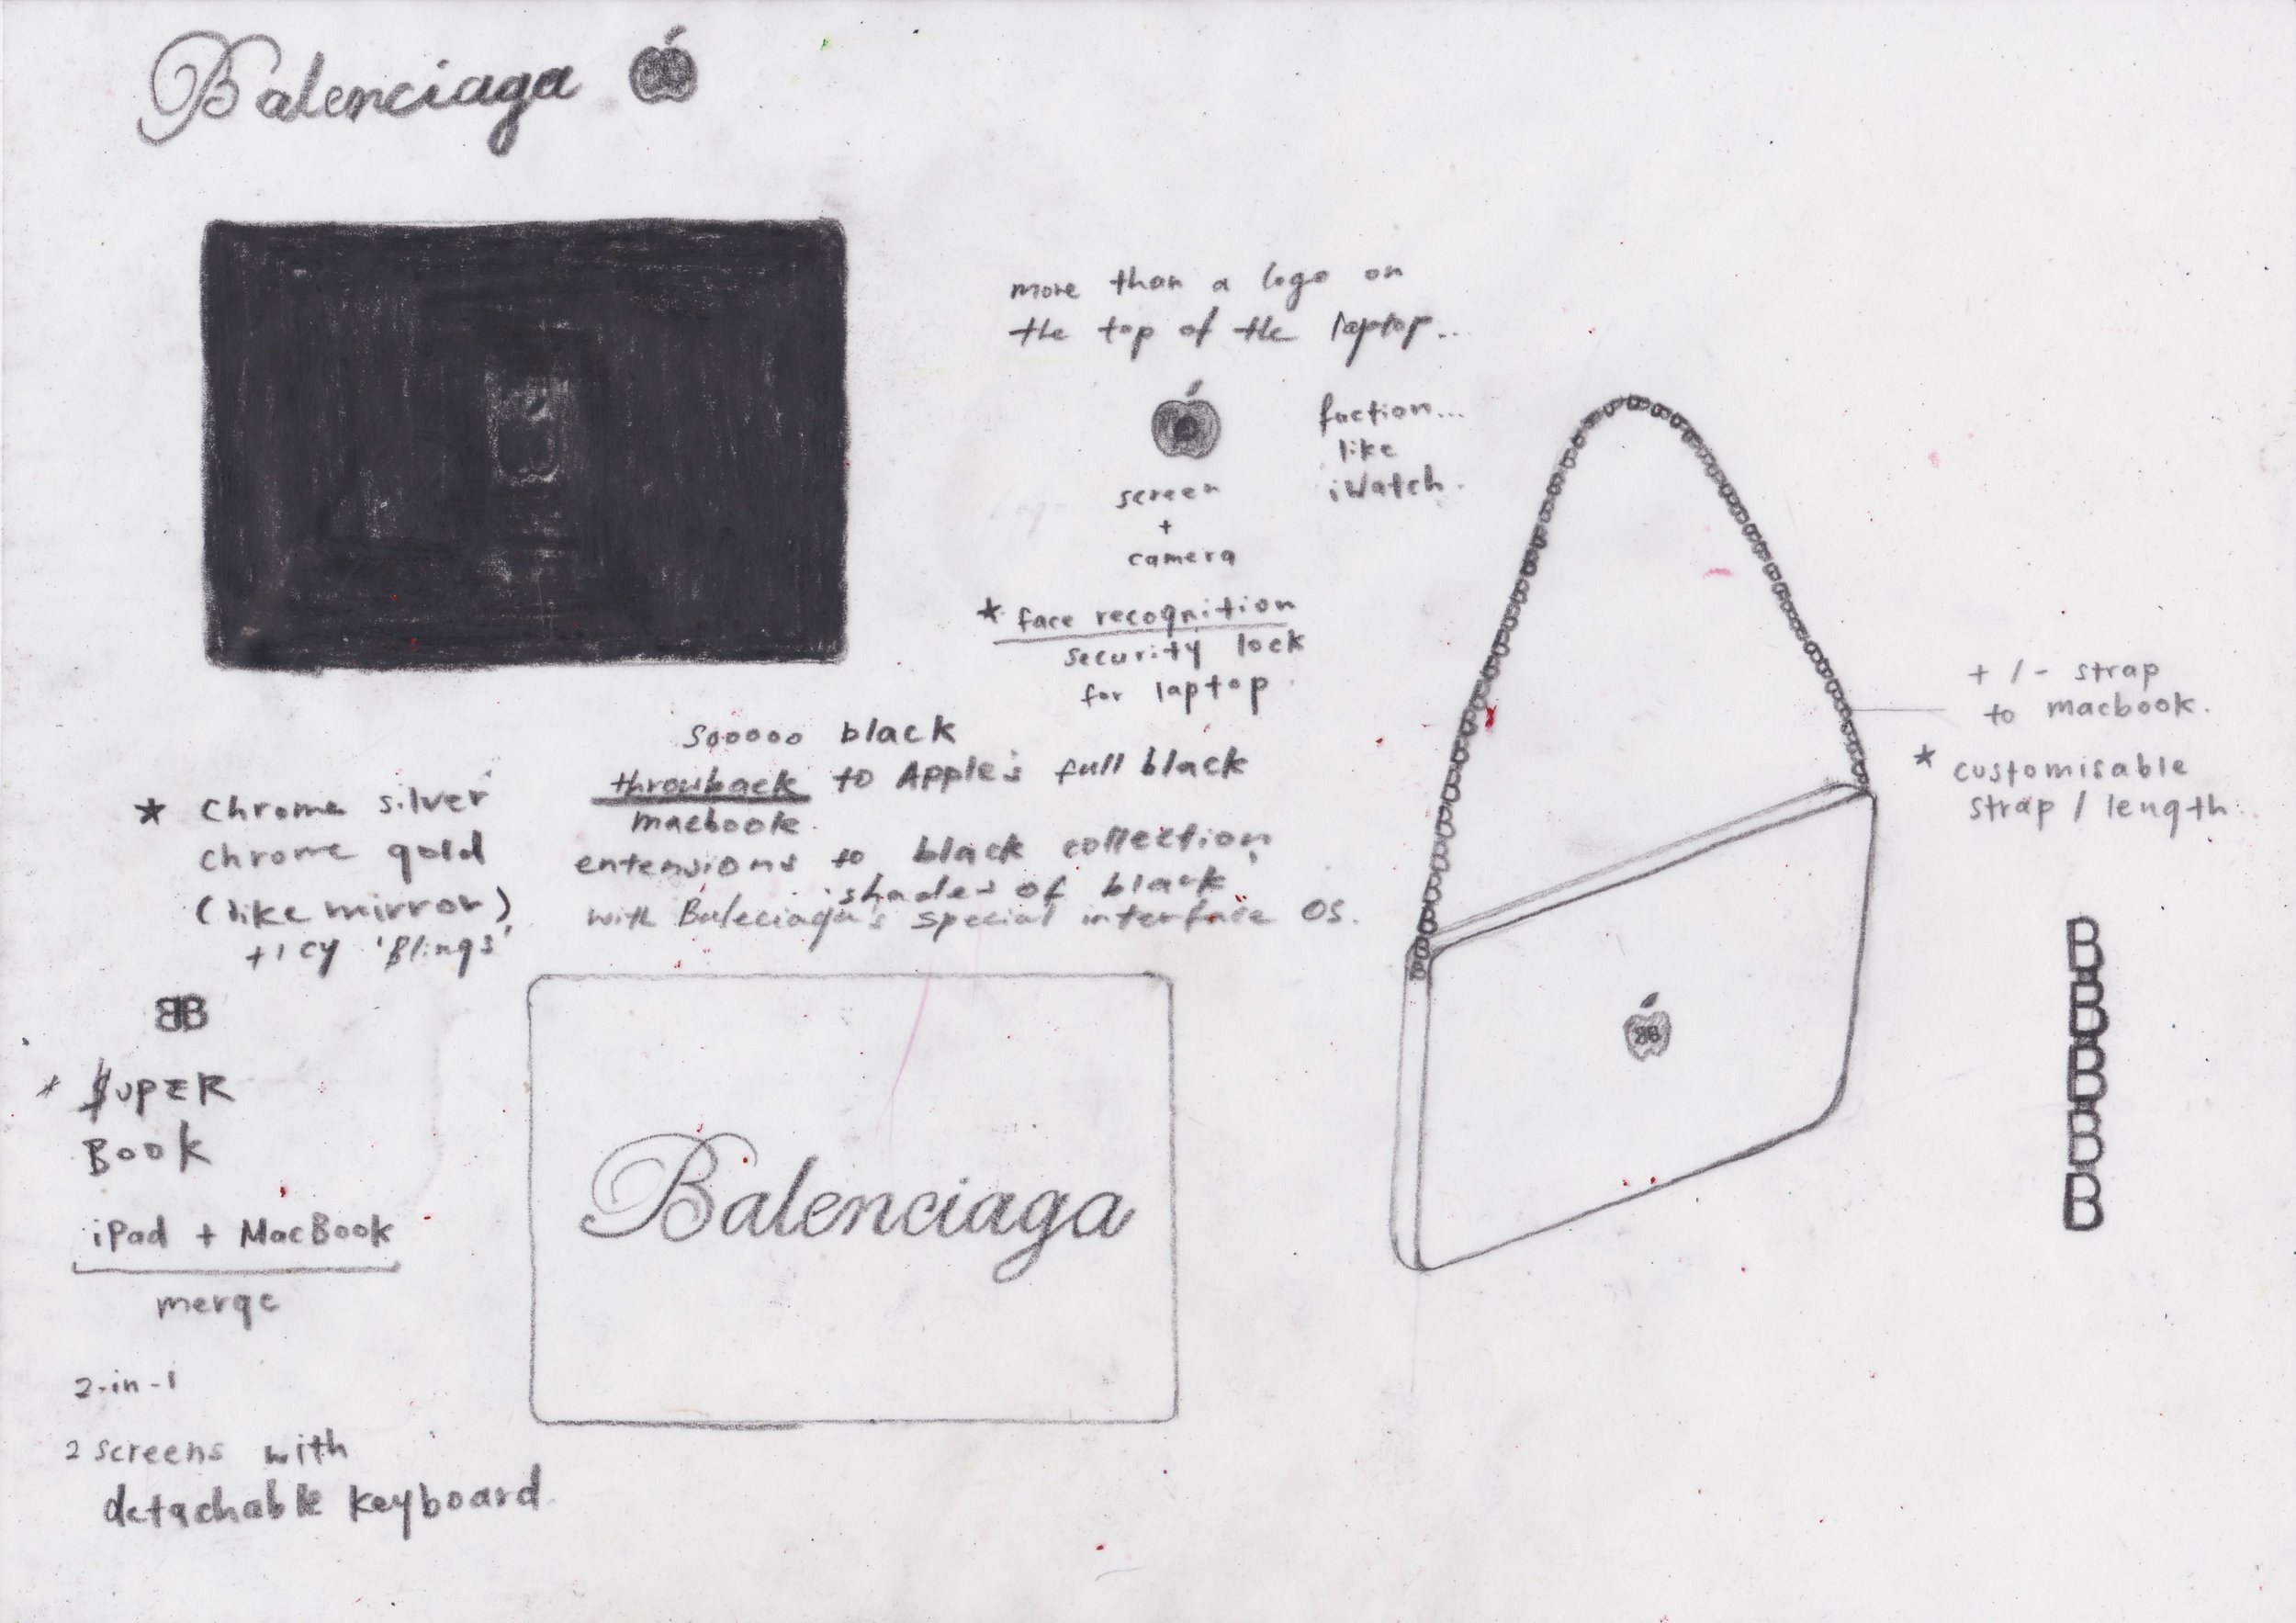 Balenciaga
more than a logo on
the top of the laptop...
screen
+
camera
fuction...
like
iWatch.
* face recognition
security lock
for laptop.
sooooo black
throwback to Apple's full black
macbook.
entensions to black collection
'shades of black'
with Baleciaga's special interface OS.
* Chrome silver
chrome gold
(like mirror)
+ icy 'Blings'
BB
* $UPER
BOOK
iPad + MacBook
merge
2-in-1
2 screens with
detachable keyboard.
Balenciaga
BB
+ / - strap
to macbook.
* customisable
strap / length.
B
B
B
B
B